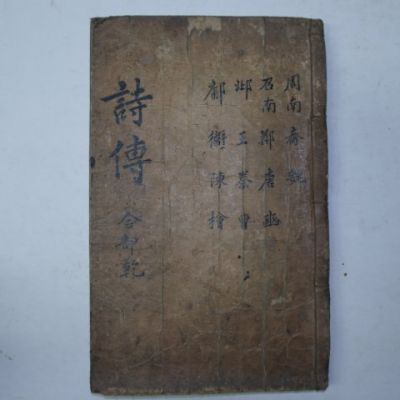 周南齊魏
召南鄭唐豳
邶王秦曹
鄘衛陳檜
詩傳 合部乾